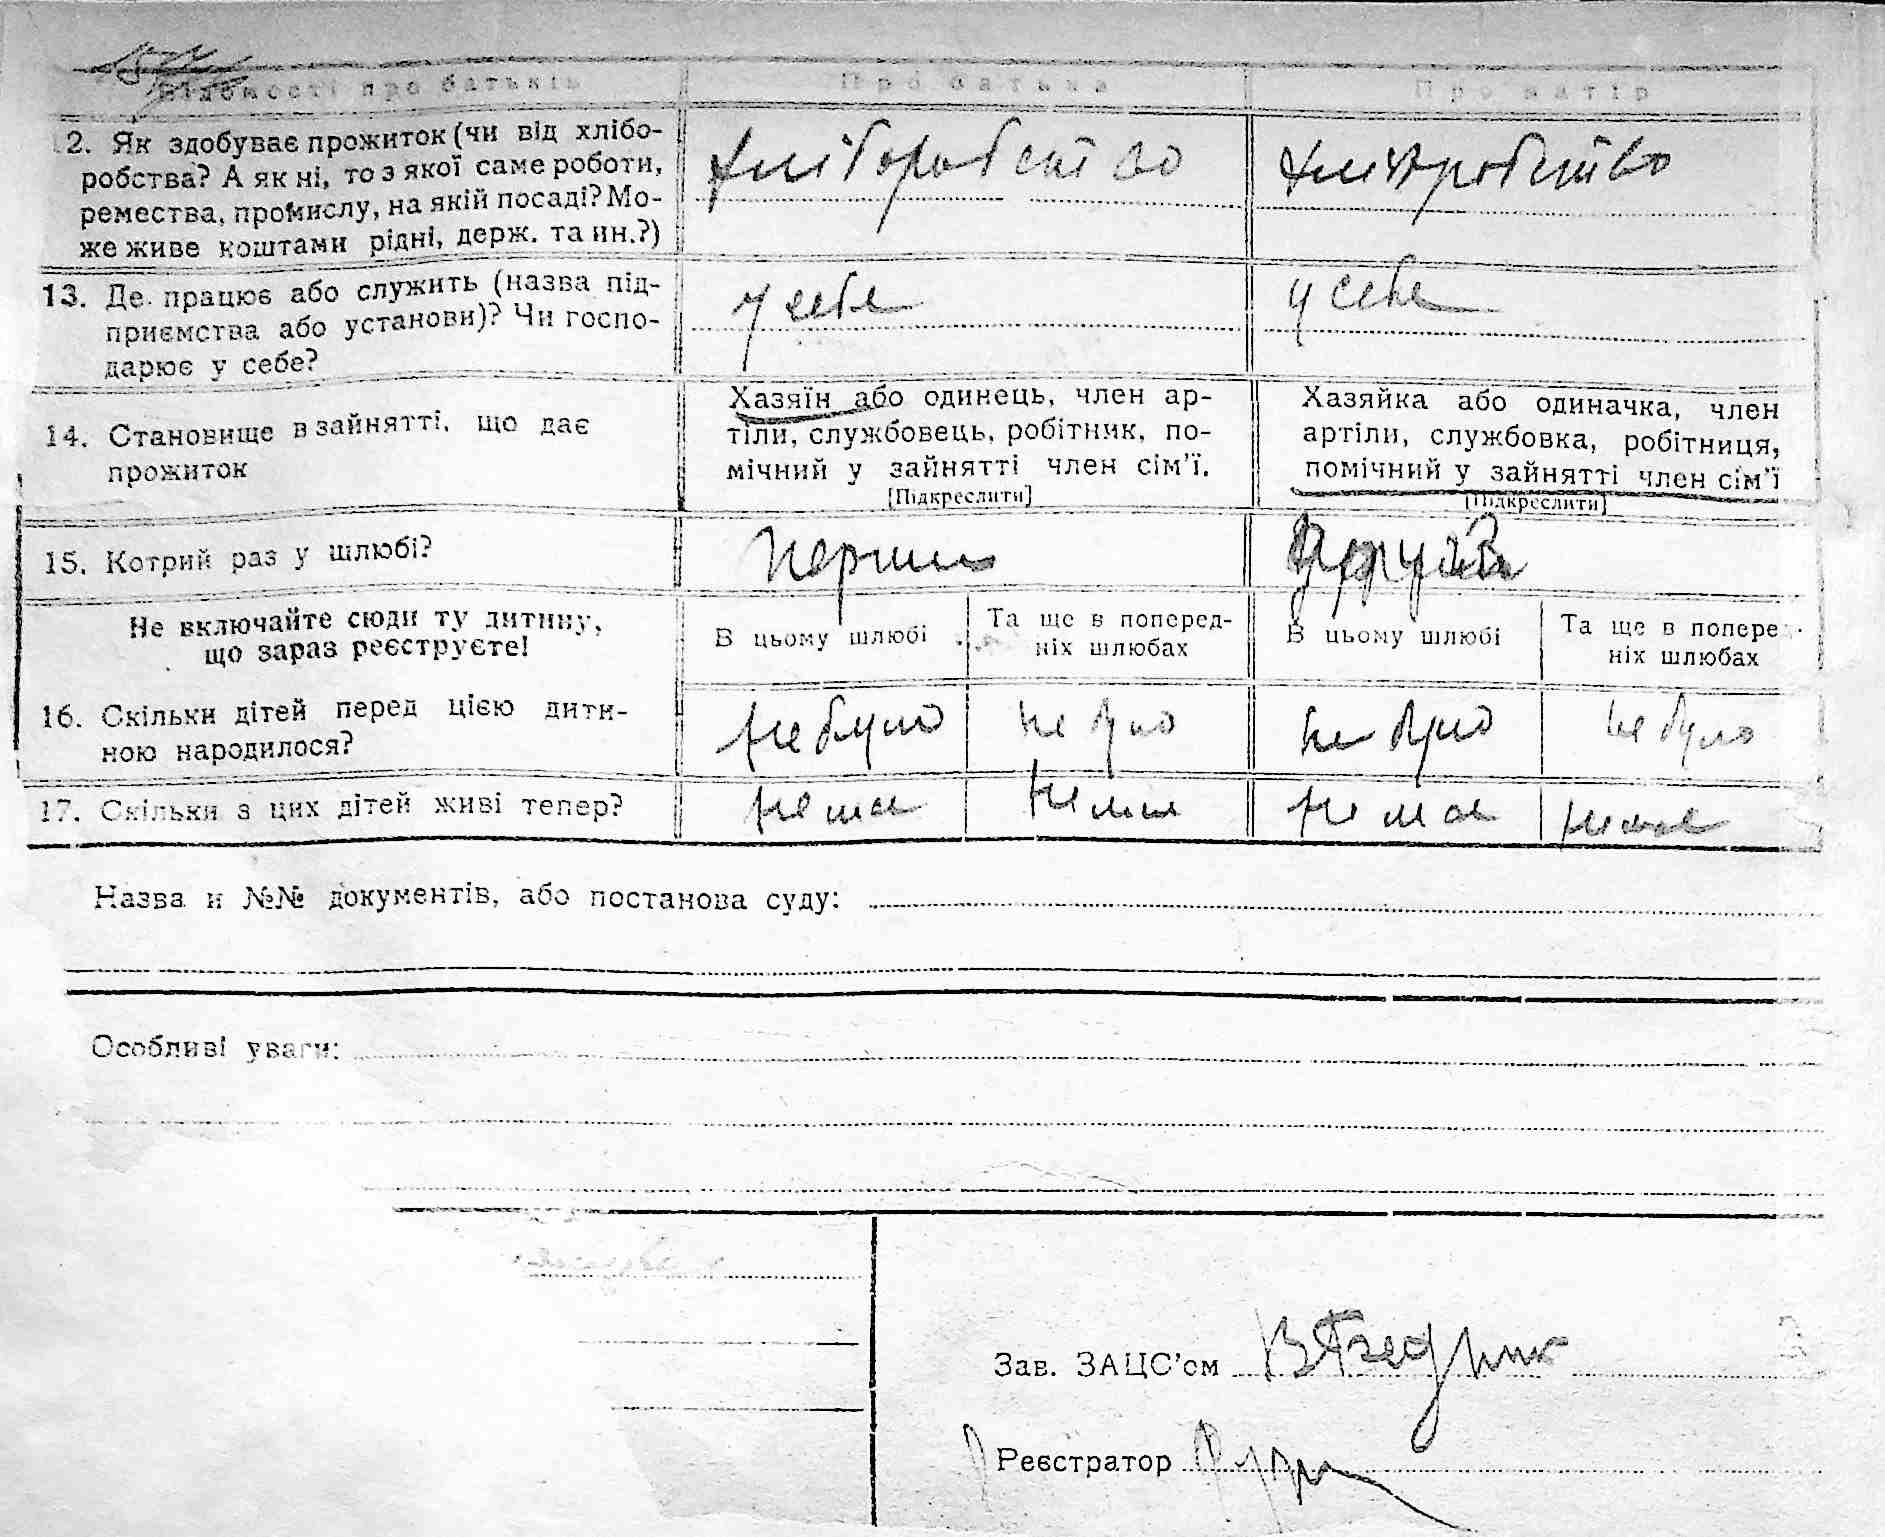 Відомості про батьків Про батька Про матір
2. Як здобуває прожиток (чи від хлібо-
робства? А як ні, то з якої саме роботи,
ремества, промислу, на якій посаді? Мо-
же живе коштами рідні, держ. та ин.?)
хліборобство
хліборобство
13. Де працює або служить (назва під-
приємства або установи)? Чи госпо-
дарює у себе?
у себе
у себе
14. Становище в зайнятті, що дає
прожиток
Хазяїн або одинець, член ар-
тіли, службовець, робітник, по-
мічний у зайнятті член сім'ї.
[Підкреслити]
Хазяйка або одиначка, член
артіли, службовка, робітниця,
помічний у зайнятті член сім'ї
[Підкреслити]
15. Котрий раз у шлюбі?
Не включайте сюди ту дитину,
що зараз реєструєте!
В цьому шлюбі
Та ще в поперед-
ніх шлюбах
В цьому шлюбі
Та ще в поперед-
ніх шлюбах
16. Скільки дітей перед цією дити-
ною народилося?
не було не було не було не було
17. Скільки з цих дітей живі тепер?
немає немає немає немає
Назва и №№ документів, або постанова суду:
Особливі уваги:
Зав. ЗАЦС'ом
Реєстратор